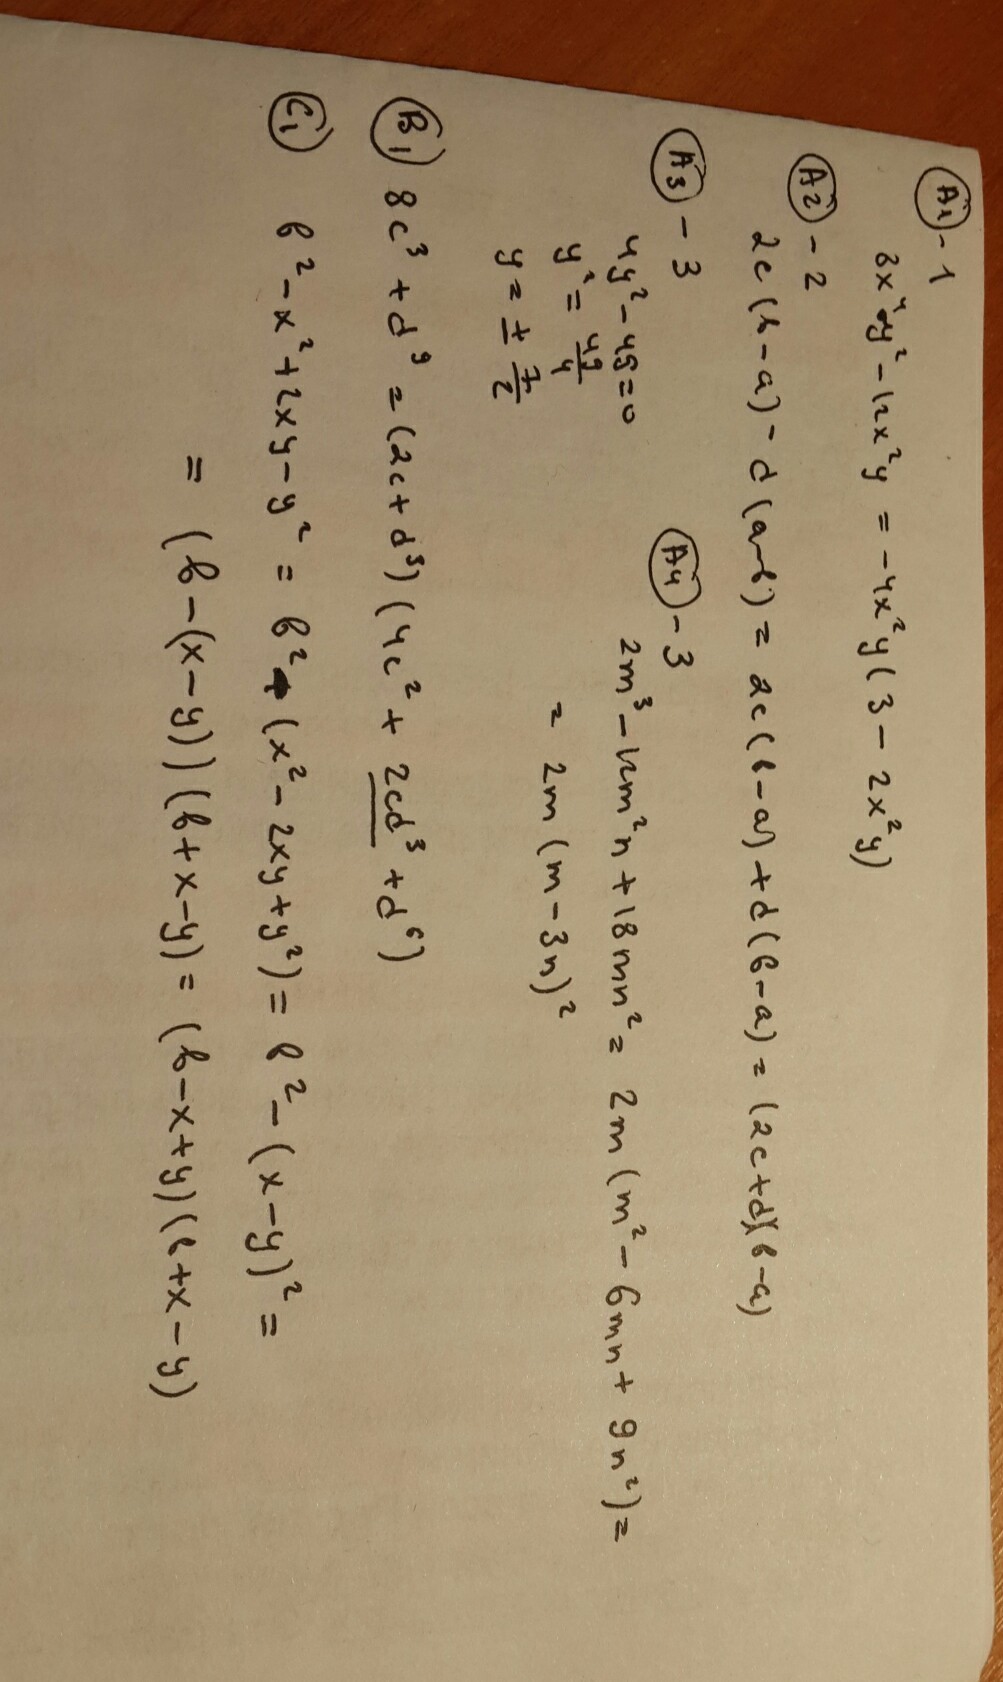 A1 - 1
8x⁴y² - 12x²y = -4x²y(3 - 2x²y)
A2 - 2
2c(b-a) - d(a-b) = 2c(b-a) + d(b-a) = (2c+d)(b-a)
A3 - 3
4y² - 49 = 0
y² = 49/4
y = ± 7/2
A4 - 3
2m³ - 12m²n + 18mn² = 2m(m² - 6mn + 9n²) =
= 2m(m - 3n)²
B1 8c³ + d⁹ = (2c + d³)(4c² + 2cd³ + d⁶)
C1 b² - x² + 2xy - y² = b² - (x² - 2xy + y²) = b² - (x-y)² =
= (b - (x-y))(b + x - y) = (b - x + y)(b + x - y)